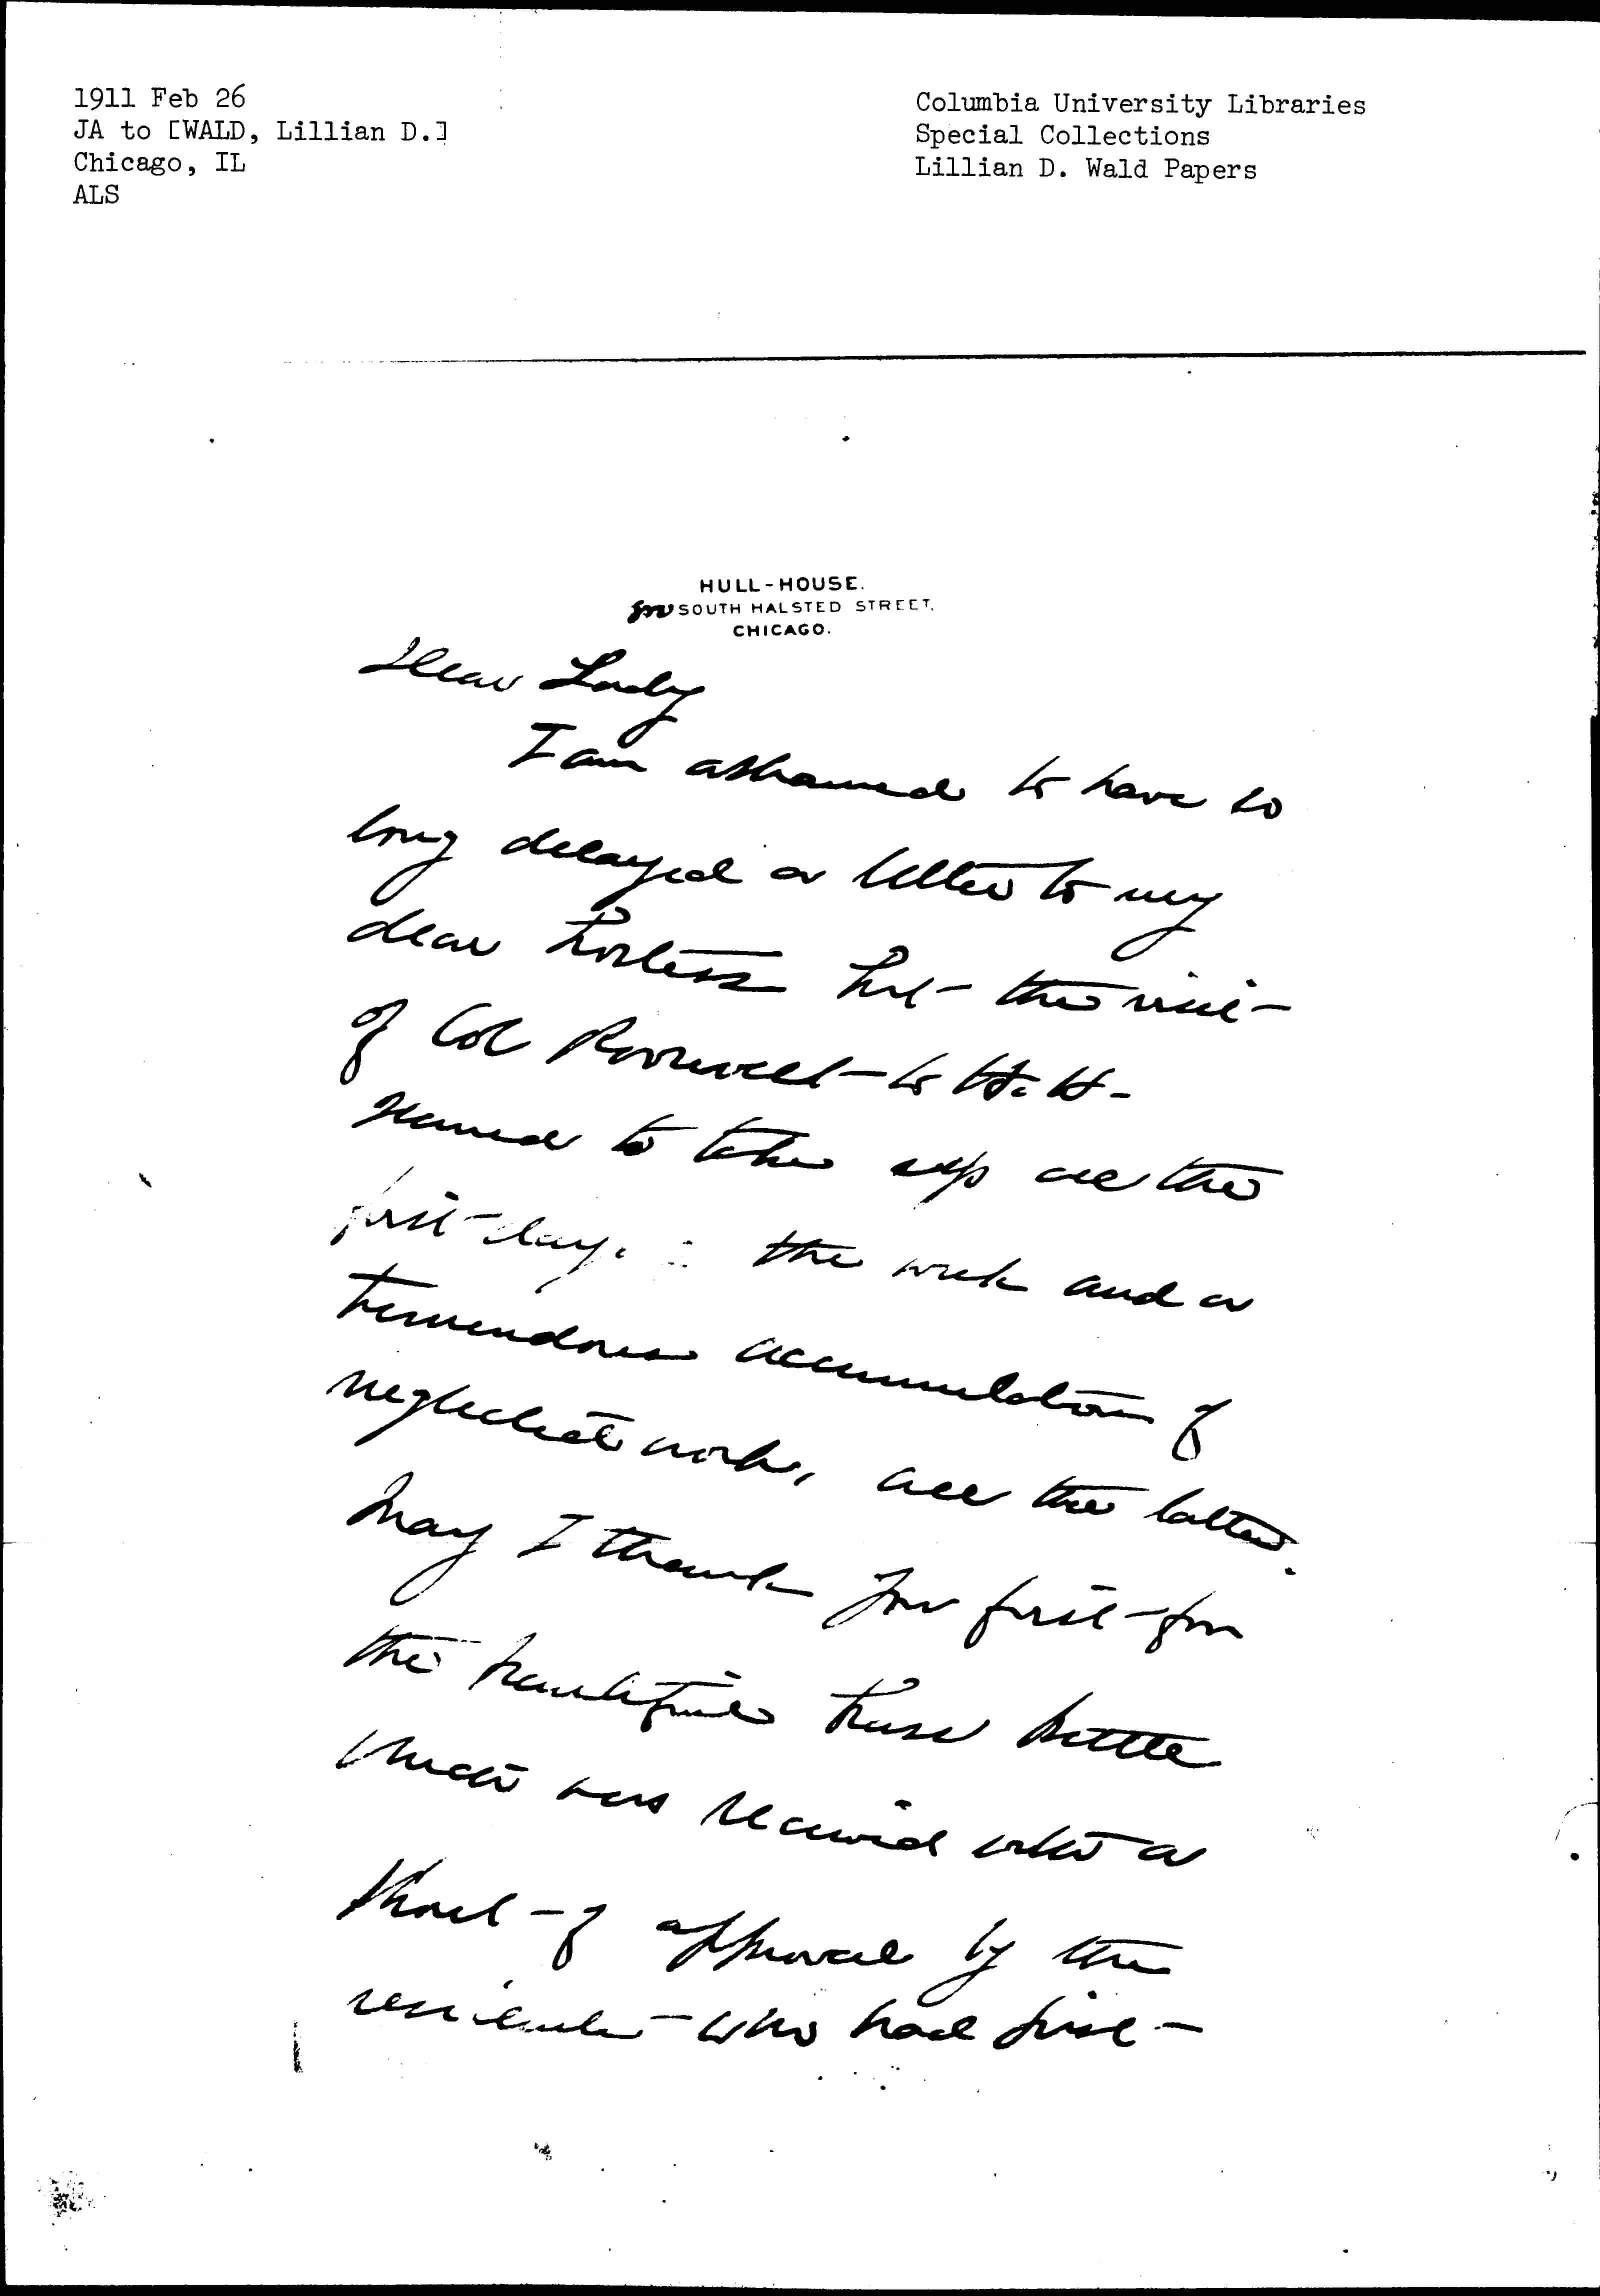 1911 Feb 26
JA to [WALD, Lillian D.]
Chicago, IL
ALS
Columbia University Libraries
Special Collections
Lillian D. Wald Papers
HULL-HOUSE.
800 SOUTH HALSTED STREET.
CHICAGO.
Dear Lady
I am ashamed to have so
long delayed a letter to my
dear hostess but the visit
of Col Roosevelt to H. H.
seemed to take up all the
first days the week and a
tremendous accumulation of
neglected work, all the latter.
May I thank you first for
the beautiful Russ kettle
which was received with a
shout of approval by the
residents who had just